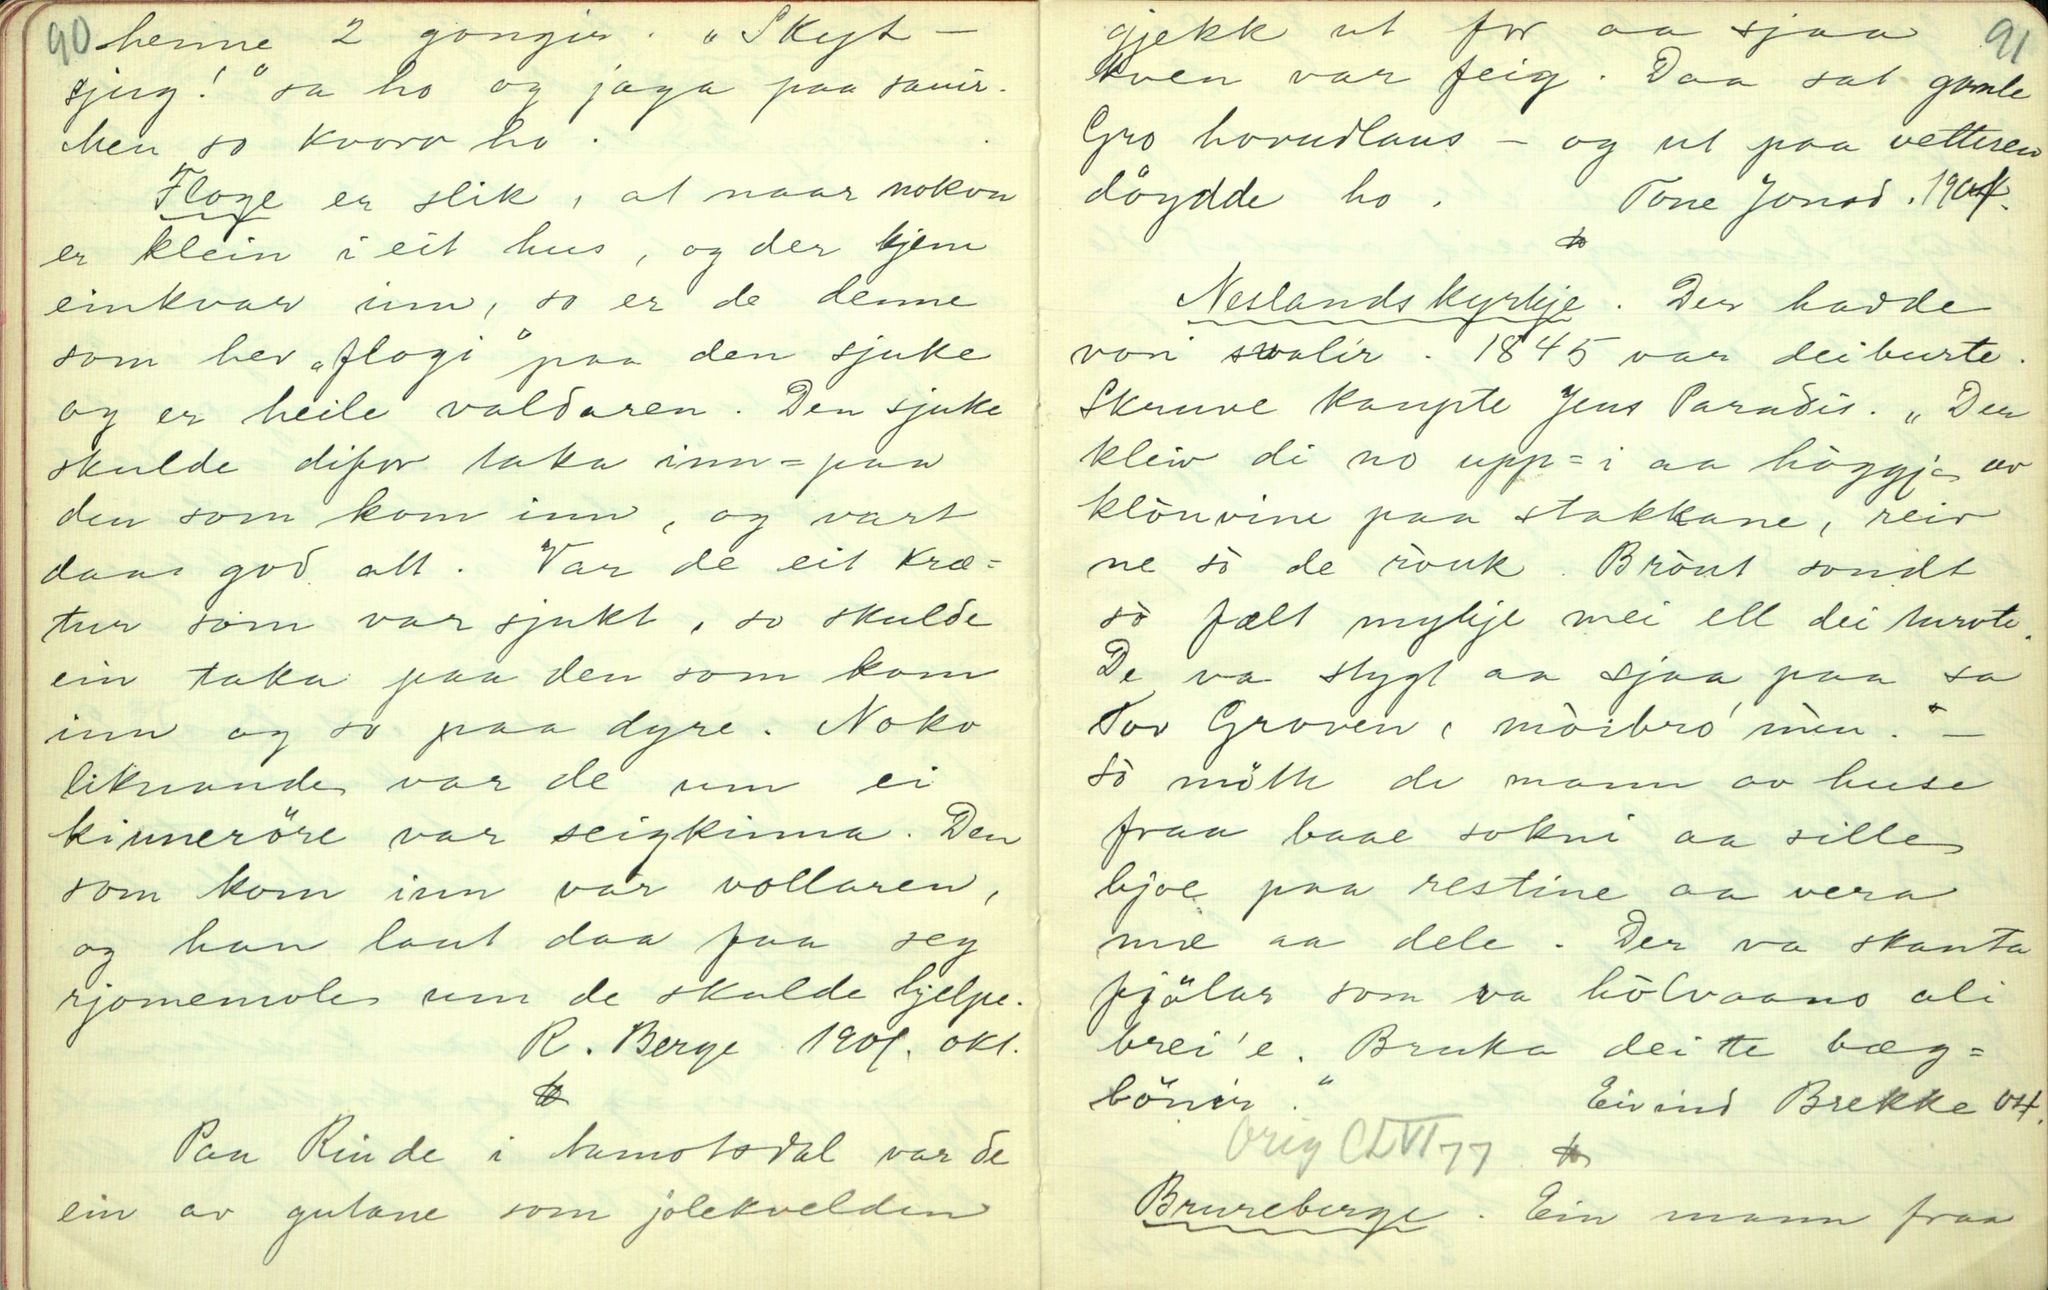 90 henne 2 gongir. "Skyt –
sjug!" sa ho og jaga paa sauir.
Men so kvarv ho.
Floge er slik, at naar nokon
er klein i eit hus, og der kjem
einkvar inn, so er de denne
som hev "flogi" paa den sjuke
og er heile valdaren. Den sjuke
skulde difor taka inn=paa
den som kom inn, og vart
daa god att. Var de eit kræ=
tur som var sjukt, so skulde
ein taka paa den som kom
inn og so paa dyre. Noko
liknande var de um ei
kinnerøre var seigkinna. Den
som kom inn var vollaren,
og han laut daa faa seg
rjomemole um de skulde hjelpe.
R. Berge 1904. okt.
Paa Rinde i Aamotsdal var de
ein av gutane som jolekvelden
91
gjekk ut for aa sjaa
kven var feig. Daa sat gamle
Gro hovudlaus – og ut paa vetteren
döydde ho. Tone Jonsd. 1904.
Neslandskyrkje. Der hadde
vori svalir. 1845 var dei burte.
Skruve kaupte Jens Paradis. "Der
kleiv di no upp=i aa höggje av
klònvine paa stakkane, reiv
ne sò de ròuk. Bròut sondt
sò fælt mykje mei ell dei turvte.
De va stygt aa sjaa paa sa
Tov Groven, mòrbró min." –
Sò mötte de mann av huse
fraa baae sokni aa sille
bjoe paa restine aa vera
mæ aa dele. Der va skanta
fjölar som va hòlvaano ali
brei'e. Bruka dei te bæg=
bönir." Eivind Brekke 04.
Orig CLVI 77
Brureberge. Ein mann fraa